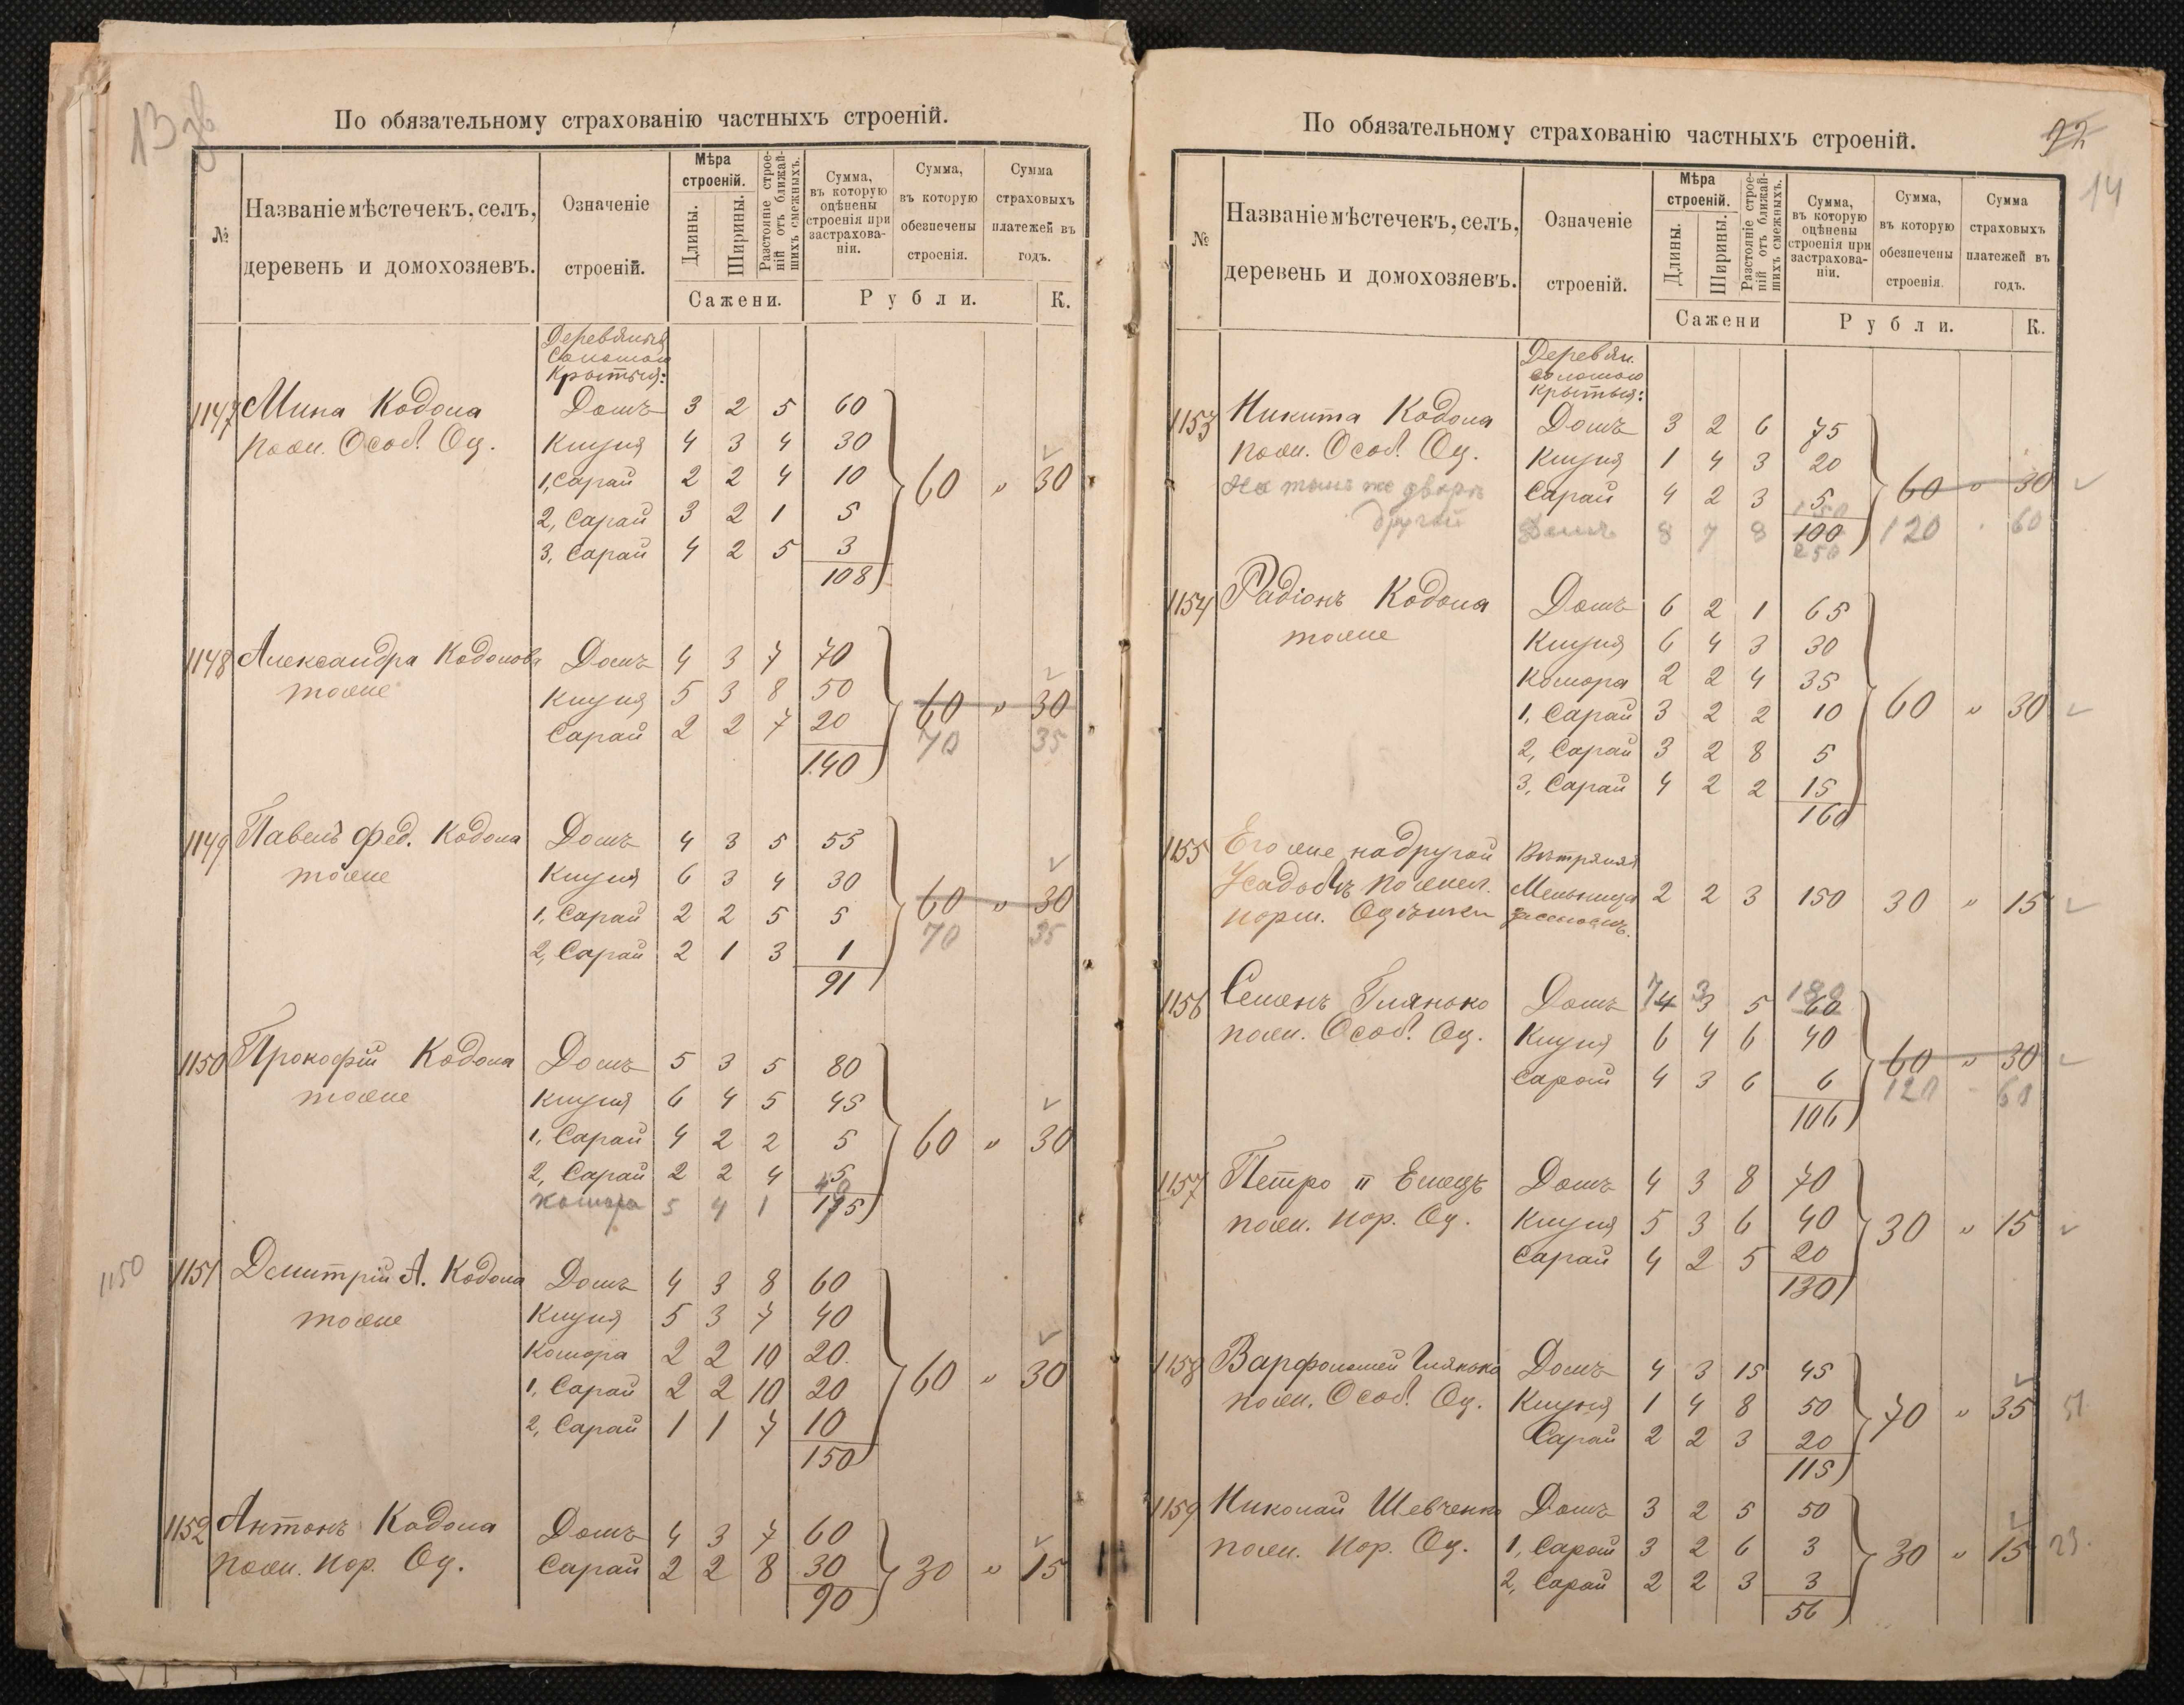 13 зв
По обязательному страхованію частныхъ строеній.
№
Названіе мѣстечекъ, селъ,
деревень и домохозяевъ.
Означеніе
строеній.
Мѣра
строеній.
Длины.
Ширины.
Разстояніе строе-
ній отъ ближай-
шихъ смежныхъ.
Сажени.
Сумма,
въ которую
оцѣнены
строенія при
застрахова-
ніи.
Сумма,
въ которую
обезпечены
строенія.
Сумма
страховыхъ
платежей въ
годъ.
Рубли.
К.
Деревяныя
Соломою
Крытыя:
1147 Мина Кодола Домъ 3 2 5 60
пом. Особ. Оц. Клуня 4 3 4 30
1, Сарай 2 2 4 10 60 „ 30
2, Сарай 3 2 1 5
3, Сарай 4 2 5 3
108
1148 Александра Кодолова Домъ 4 3 7 70
тоже Клуня 5 3 8 50 60 „ 30
Сарай 2 2 7 20 70 35
140
1149 Павелъ Фед. Кодола Домъ 4 3 5 55
тоже Клуня 6 3 4 30
1, Сарай 2 2 5 5 60 „ 30
2, Сарай 2 1 3 1 70 35
91
1150 Прокофій Кодола Домъ 5 3 5 80
тоже Клуня 6 4 5 45
1, Сарай 4 2 2 5 60 „ 30
2, Сарай 2 2 4 5
40
Комора 5 4 1 135
1150
1151 Дмитрій А. Кодола Домъ 4 3 8 60
тоже Клуня 5 3 7 40
Комора 2 2 10 20
1, Сарай 2 2 10 20 60 „ 30
2, Сарай 1 1 7 10
150
1152 Антонъ Кодола Домъ 4 3 7 60
пом. Нор. Оц. Сарай 2 2 8 30 30 „ 15
90
92
14
По обязательному страхованію частныхъ строеній.
№
Названіе мѣстечекъ, селъ,
деревень и домохозяевъ.
Означеніе
строеній.
Мѣра
строеній.
Длины.
Ширины.
Разстояніе строе-
ній отъ ближай-
шихъ смежныхъ.
Сажени
Сумма,
въ которую
оцѣнены
строенія при
застрахова-
ніи.
Сумма,
въ которую
обезпечены
строенія.
Сумма
страховыхъ
платежей въ
годъ.
Рубли.
К.
Деревян.
соломою
крытыя:
1153 Никита Кодола Домъ 3 2 6 75
пом. Особ. Оц. Клуня 1 4 3 20
На томъ же дворѣ Сарай 4 2 3 5 60 „ 30
150
другой Домъ 8 7 8 100 120 60
250
1154 Радіонъ Кодола Домъ 6 2 1 65
тоже Клуня 6 4 3 30
Комора 2 2 4 35
1, Сарай 3 2 2 10 60 „ 30
2, Сарай 3 2 8 5
3, Сарай 4 2 2 15
160
1155 Его же на другой Вѣтряная
Усадьбѣ Мельница 2 2 3 150 30 „ 15
норм. Оцѣнки
1156 Семенъ Глянько Домъ 7 4 3 3 5 180 60
пом. Особ. Оц. Клуня 6 4 6 40
Сарай 4 3 6 6 60 „ 30
106 120 60
1157 Петро II Емецъ Домъ 4 3 8 70
пом. Нор. Оц. Клуня 5 3 6 40 30 „ 15
Сарай 4 2 5 20
130
1158 Варфоломей Глянько Домъ 4 3 15 45
пом. Особ. Оц. Клуня 1 4 8 50 70 „ 35 51.
Сарай 2 2 3 20
115
1159 Николай Шевченко Домъ 3 2 5 50
пом. Нор. Оц. 1, Сарай 3 2 6 3 30 „ 15 23.
2, Сарай 2 2 3 3
56